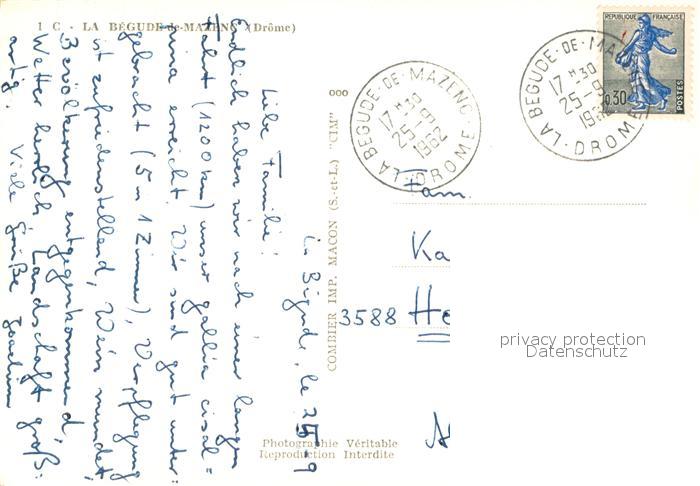 1 C - LA BÉGUDE-de-MAZENC (Drôme)
La Bégude, le 25.9
Liebe Familie!
Endlich haben wir nach einer langen
Fahrt (1200 km) unser gallia cisal=
pina erreicht. Wir sind gut unter:
gebracht (5 in 1 Zimmer), Verpflegung
ist zufriedenstellend, Wein mundet,
Bevölkerung entgegenkommend,
Wetter herrlich, Landschaft groß:
artig. Viele Grüße Joachim
COMBIER IMP. MACON (S.-et-L.) "CIM"
Photographie Véritable
Reproduction Interdite
LA BEGUDE-DE-MAZENC
17 H 30
25-9
1962
DROME
LA BEGUDE-DE-MA
17 H 30
25-9
196
DROME
REPUBLIQUE FRANÇAISE
0,30
POSTES
Fam.
Ka
3588 He
privacy protection
Datenschutz